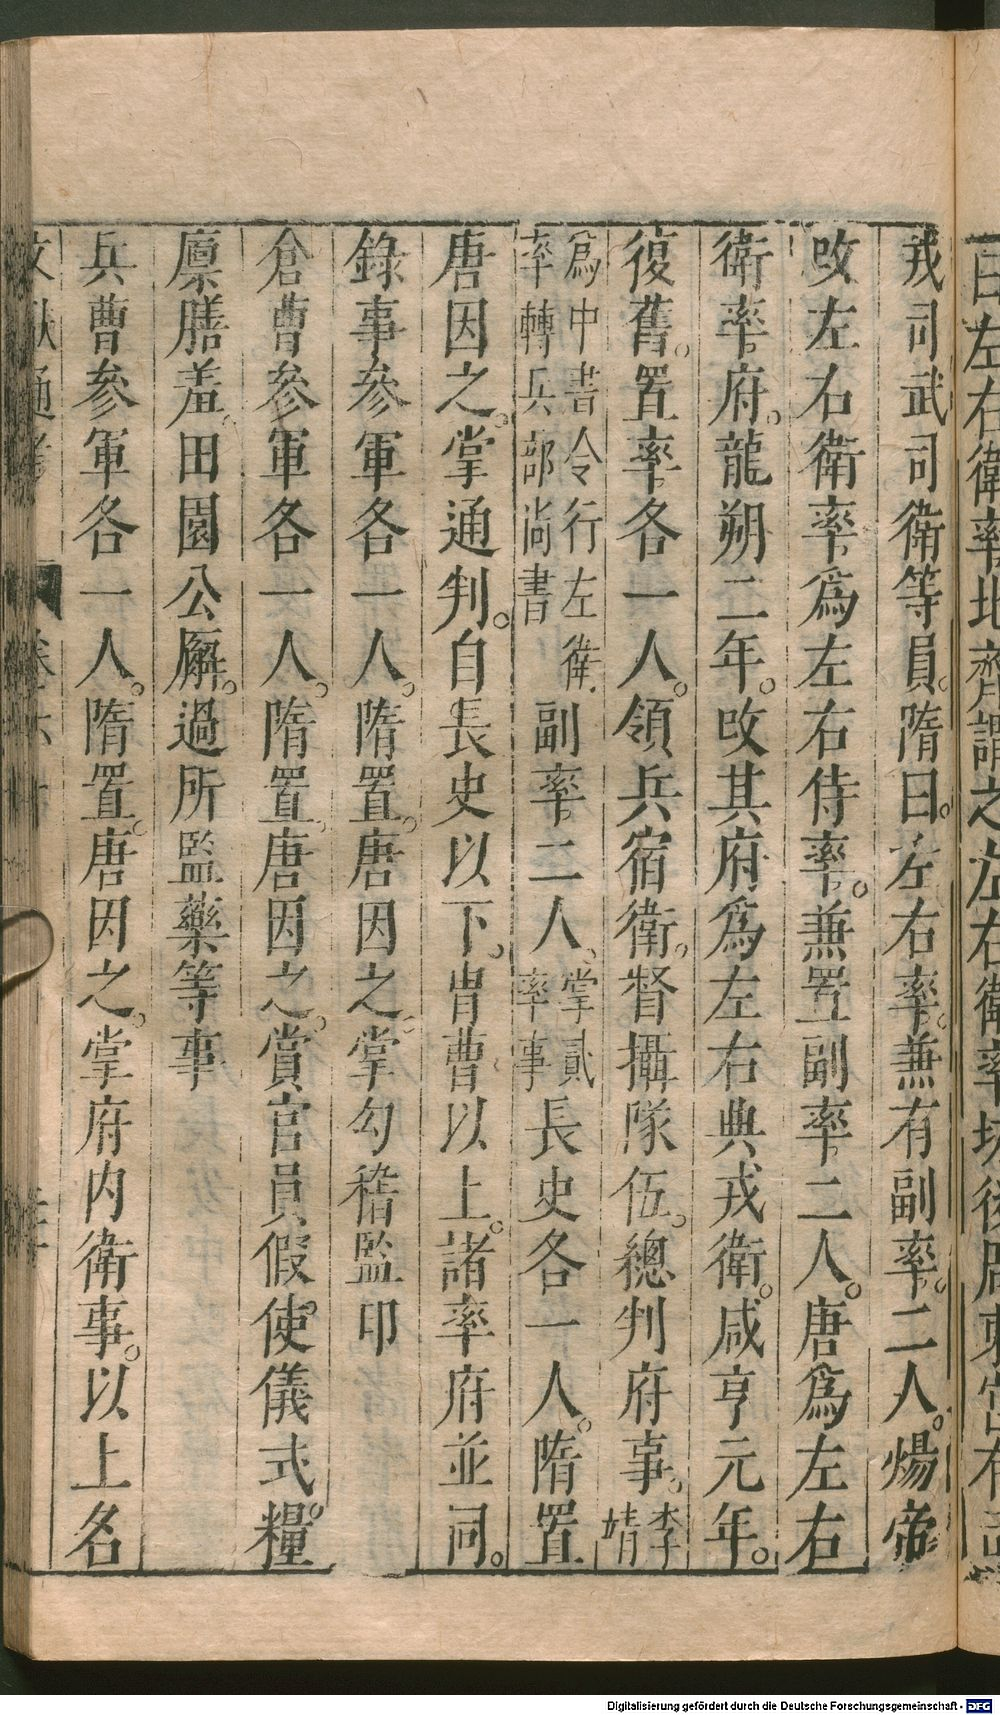 曰左右衞率北齊謂之左右衞率坊後周東宮有司
戎司武司衞等員。隋曰。左右率。兼有副率。二人。煬帝
改左右衞率爲左右侍率。兼置副率二人。唐爲左右
衞率府。龍朔二年。改其府爲左右典戎衞。咸亨元年。
復舊。置率各一人。領兵宿衞。督攝隊伍。總判府事。李靖
爲中書令行左衞率轉兵部尚書副率二人。掌貳率事長史各一人。隋置
唐因之。掌通判。自長史以下。胄曹以上。諸率府並同。
錄事參軍各一人。隋置。唐因之。掌勾稽監印
倉曹參軍各一人。隋置。唐因之。賞官員假使儀式。糧
廪膳羞。田園公廨。過所監藥等事
兵曹參軍各一人。隋置。唐因之。掌府内衞事。以上名
文獻通考
Digitalisierung gefördert durch die Deutsche Forschungsgemeinschaft - DFG